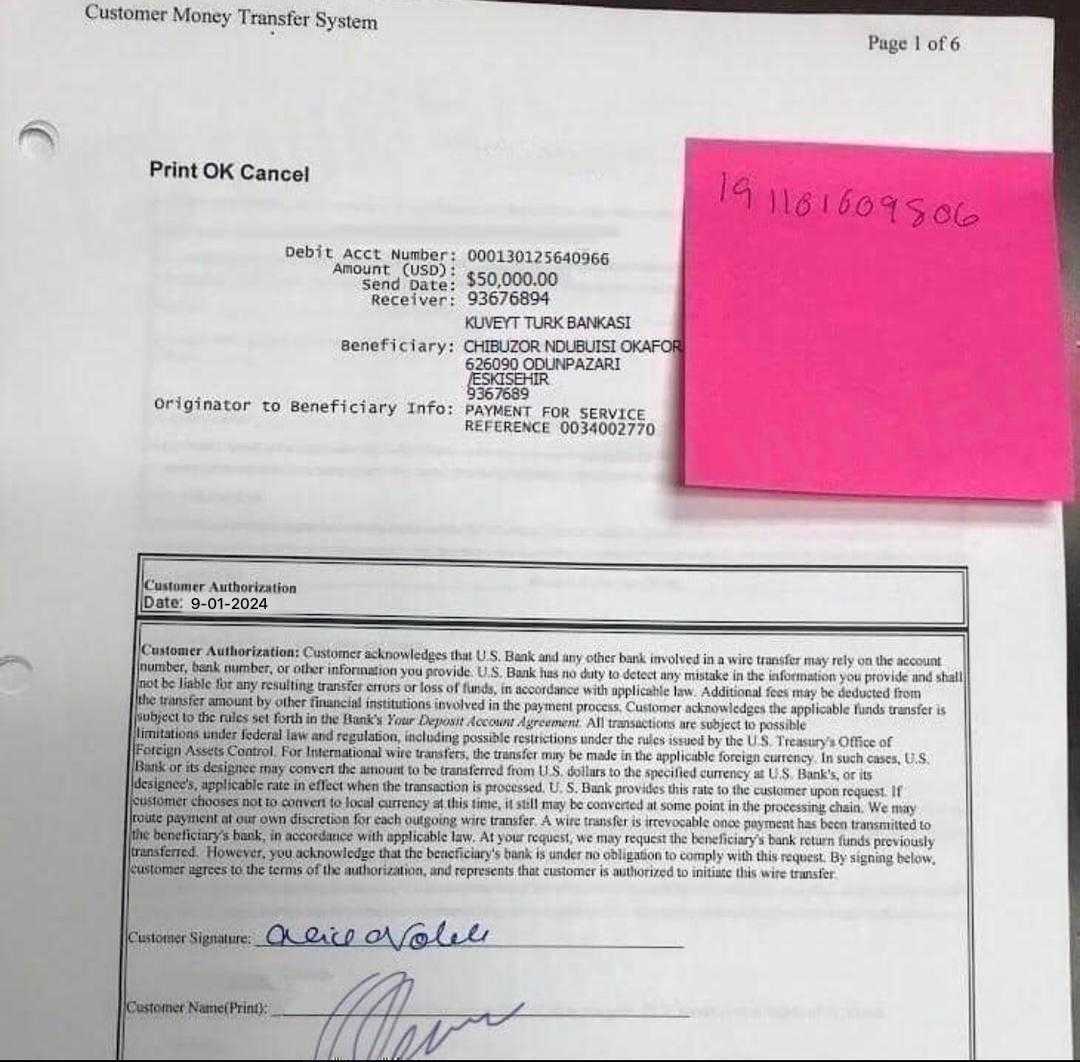 Customer Money Transfer System
Page 1 of 6
Print OK Cancel
19 1181609806
Debit Acct Number: 000130125640966
Amount (USD): $50,000.00
Send Date:
Receiver: 93676894
KUVEYT TURK BANKASI
Beneficiary: CHIBUZOR NDUBUISI OKAFOR
626090 ODUNPAZARI
/ESKISEHIR
9367689
Originator to Beneficiary Info: PAYMENT FOR SERVICE
REFERENCE 0034002770
Customer Authorization
Date: 9-01-2024
Customer Authorization: Customer acknowledges that U.S. Bank and any other bank involved in a wire transfer may rely on the account
number, bank number, or other information you provide. U.S. Bank has no duty to detect any mistake in the information you provide and shall
not be liable for any resulting transfer errors or loss of funds, in accordance with applicable law. Additional fees may be deducted from
the transfer amount by other financial institutions involved in the payment process. Customer acknowledges the applicable funds transfer is
subject to the rules set forth in the Bank's Your Deposit Account Agreement. All transactions are subject to possible
limitations under federal law and regulation, including possible restrictions under the rules issued by the U.S. Treasury's Office of
Foreign Assets Control. For International wire transfers, the transfer may be made in the applicable foreign currency. In such cases, U.S.
Bank or its designee may convert the amount to be transferred from U.S. dollars to the specified currency at U.S. Bank's, or its
designee's, applicable rate in effect when the transaction is processed. U. S. Bank provides this rate to the customer upon request. If
customer chooses not to convert to local currency at this time, it still may be converted at some point in the processing chain. We may
route payment at our own discretion for each outgoing wire transfer. A wire transfer is irrevocable once payment has been transmitted to
the beneficiary's bank, in accordance with applicable law. At your request, we may request the beneficiary's bank return funds previously
transferred. However, you acknowledge that the beneficiary's bank is under no obligation to comply with this request. By signing below,
customer agrees to the terms of the authorization, and represents that customer is authorized to initiate this wire transfer.
Customer Signature:
Customer Name(Print):